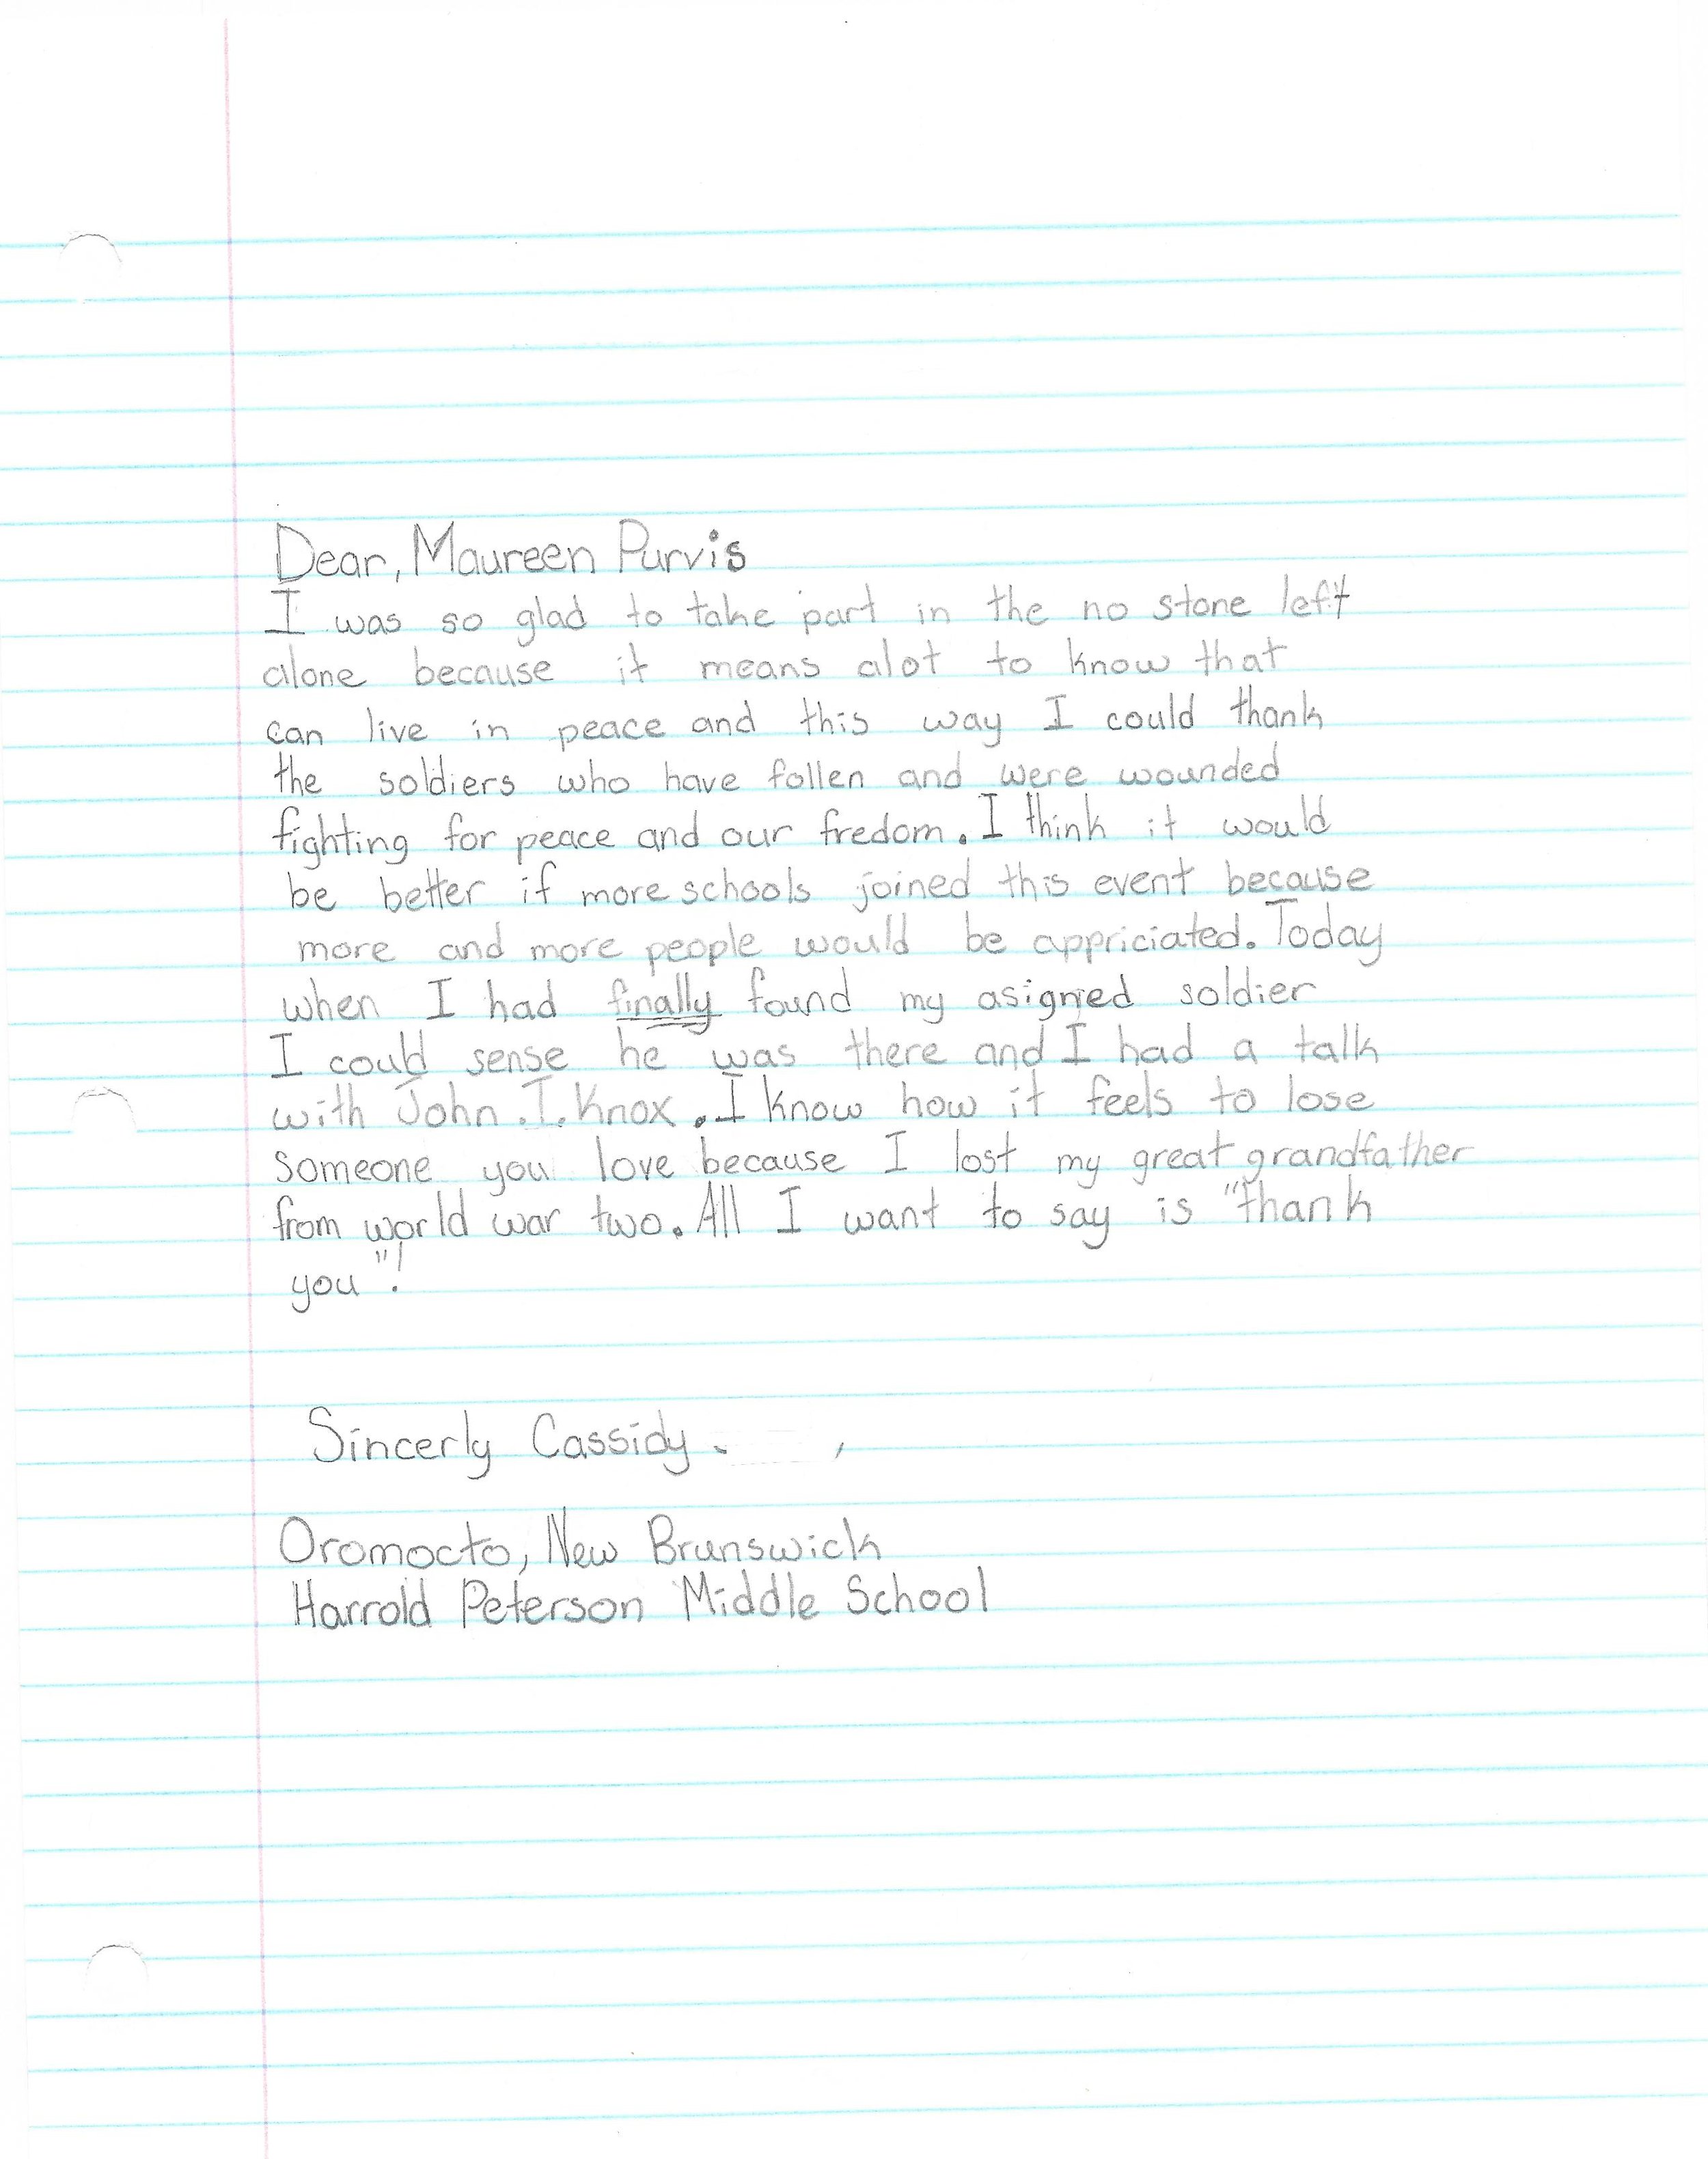 Dear, Maureen Purvis
I was so glad to take part in the no stone left
alone because it means alot to know that
can live in peace and this way I could thank
the soldiers who have follen and were wounded
fighting for peace and our fredom. I think it would
be better if more schools joined this event because
more and more people would be appriciated. Today
when I had finally found my asigned soldier
I could sense he was there and I had a talk
with John .I. Knox . I know how it feels to lose
someone you love because I lost my great grandfather
from world war two. All I want to say is "thank
you"!
Sincerly Cassidy
Oromocto, New Brunswick
Harrold Peterson Middle School